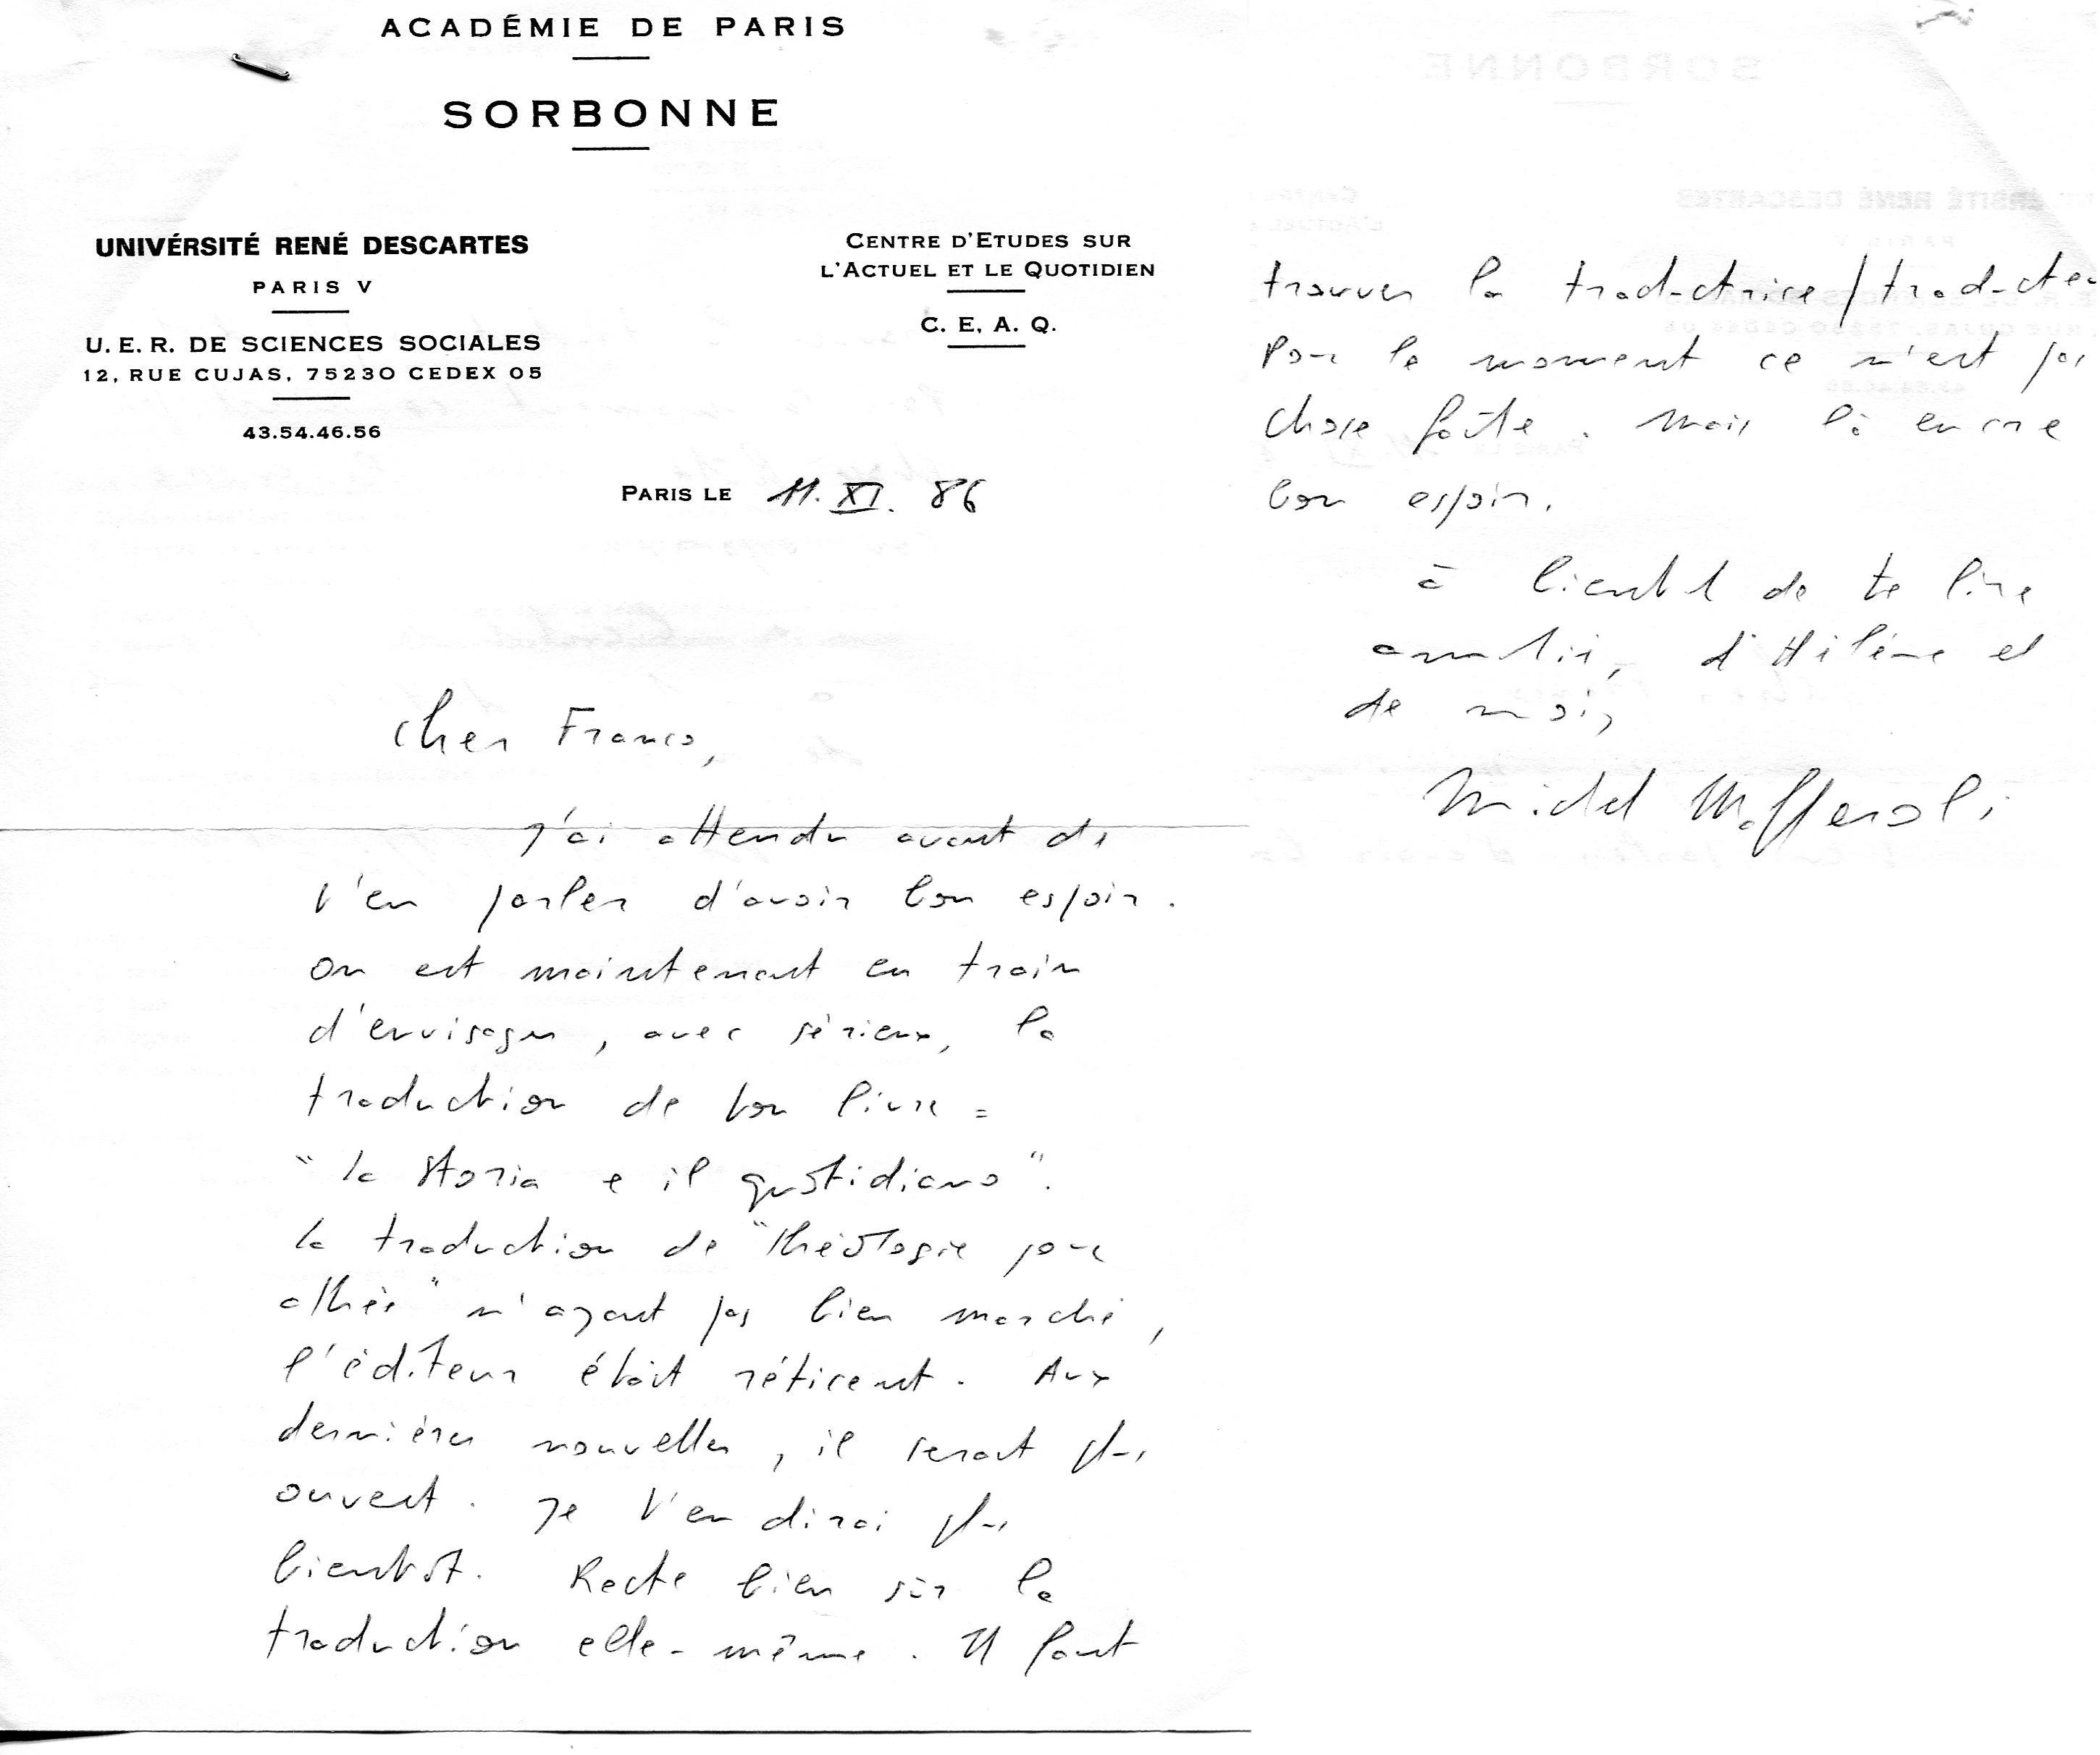 ACADÉMIE DE PARIS
SORBONNE
UNIVÉRSITÉ RENÉ DESCARTES
PARIS V
U. E. R. DE SCIENCES SOCIALES
12, RUE CUJAS, 75230 CEDEX 05
43.54.46.56
CENTRE D'ETUDES SUR
L'ACTUEL ET LE QUOTIDIEN
C. E. A. Q.
PARIS LE 11. XI. 86
Cher Franco,
J'ai attendu avant de
t'en parler d'avoir bon espoir.
On est maintenant en train
d'envisager, avec sérieux, la
traduction de ton livre =
"la storia e il quotidiano".
la traduction de "théologie pour
athée" n'ayant pas bien marché,
l'éditeur était réticent. Aux
dernières nouvelles, il serait plus
ouvert. Je t'en dirai plus
bientôt. Reste bien sûr la
traduction elle-même. Il faut
trouver la traductrice/traducteu
Pour le moment ce n'est pas
chose faite. Mais là encore
bon espoir.
à bientôt de te lire
amitiés, d'Hélène et
de moi,
Michel Maffesoli